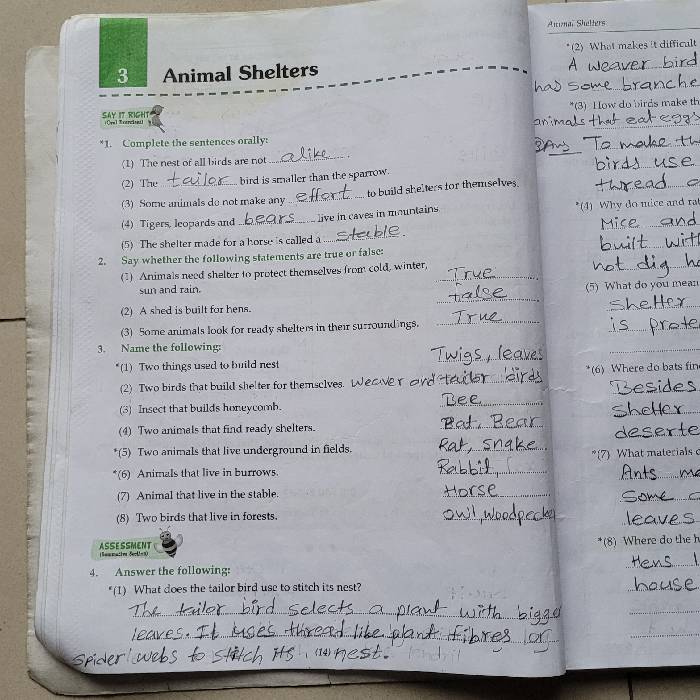 3 Animal Shelters
SAY IT RIGHT
(Oral Exercises)
*1. Complete the sentences orally:
(1) The nest of all birds are not alike.
(2) The tailor bird is smaller than the sparrow.
(3) Some animals do not make any effort to build shelters for themselves.
(4) Tigers, leopards and bears live in caves in mountains
(5) The shelter made for a horse is called a stable.
2. Say whether the following statements are true or false:
(1) Animals need shelter to protect themselves from cold, winter, True
sun and rain.
(2) A shed is built for hens. false
(3) Some animals look for ready shelters in their surroundings. True
3. Name the following:
*(1) Two things used to build nest Twigs, leaves
(2) Two birds that build shelter for themselves. Weaver and tailor birds
(3) Insect that builds honeycomb. Bee
(4) Two animals that find ready shelters. Bat, Bear
*(5) Two animals that live underground in fields. Rat, snake
*(6) Animals that live in burrows. Rabbit,
(7) Animal that live in the stable. Horse
(8) Two birds that live in forests. owl, woodpecker
ASSESSMENT
4. Answer the following:
*(1) What does the tailor bird use to stitch its nest?
The tailor bird selects a plant with bigge
leaves. It uses thread like plant fibres or
spider webs to stitch its nest.
(14)
Animal Shelters
*(2) What makes it difficult
A weaver bird
has some branche
*(3) How do birds make th
animals that eat eggs
3Ans To make th
birds use
thread
*(4) Why do mice and rat
Mice and
built with
not dig ho
(5) What do you mean
shelter
is prote
*(6) Where do bats fin
Besides
shelter
deserte
*(7) What materials
Ants ma
Some
leaves
*(8) Where do the h
Hens l
house